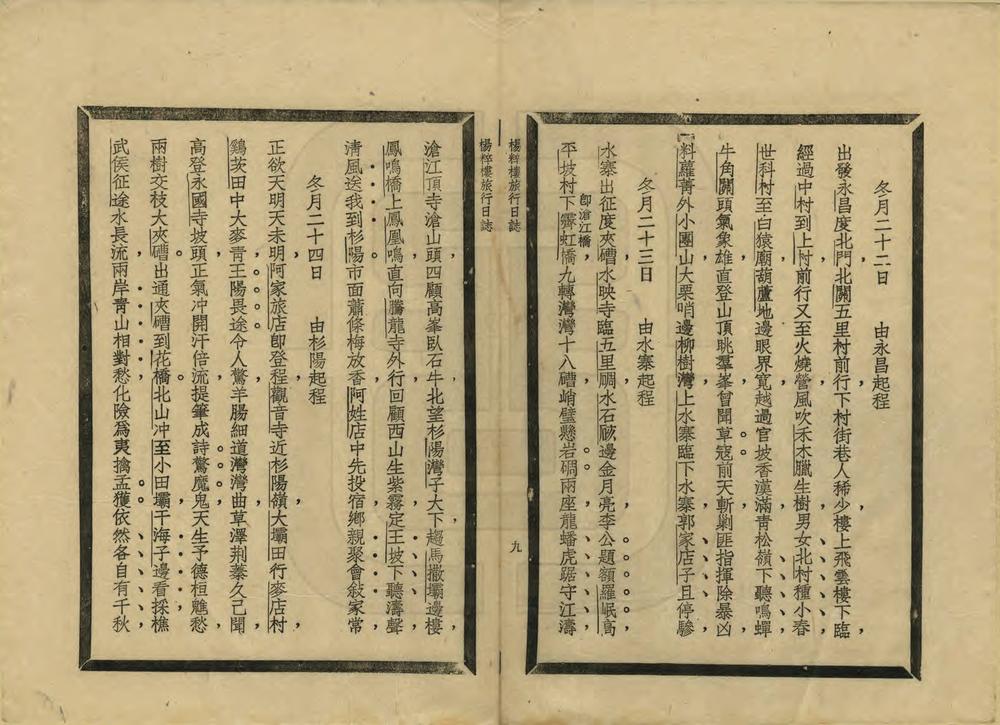 冬月二十二日　由永昌起程
出發永昌度北門北關五里村前行下村街巷人稀少樓上飛雲樓下臨
經過中村到上村前行又至火燒營風吹禾木臘生樹男女北村種小春
世科村至白猿廟葫蘆地邊眼界寬越過官坡香漢滿青松嶺下聽鳴蟬
牛角關頭氣象雄直登山頂眺羣峯曾聞草寇前天斬剿匪指揮除暴凶
一料蘿菁外小團山大栗哨邊柳樹灣上水寨臨下水寨郭家店子且停驂
冬月二十三日　由水寨起程
水寨出征度夾磄水映寺臨五里關水石厰邊金月亮李公題額羅岷高
平坡村下霽虹橋九轉灣灣十八磄峭壁懸岩碉兩座龍蟠虎踞守江濤
卽滄江橋
楊粹樓旅行日誌
九
楊粹樓旅行日誌
滄江頂寺滄山頭四顧高峯臥石牛北望杉陽灣子大下趨馬撒壩邊樓
鳳鳴橋上鳳凰鳴直向騰龍寺外行回顧西山生紫霧定王坡下聽濤聲
清風送我到杉陽市面蕭條梅放香阿姓店中先投宿鄉親聚會敍家常
冬月二十四日　由杉陽起程
正欲天明天未明阿家旅店卽登程觀音寺近杉陽嶺大壩田行麥店村
鷄茨田中大麥青王陽畏途令人驚羊腸細道灣灣曲草澤荆蓁久已聞
高登永國寺坡頭正氣冲開汗倍流提筆成詩驚魔鬼天生予德桓魋愁
兩樹交枝大夾磄出通夾磄到花橋北山冲至小田壩干海子邊看採樵
武侯征途水長流兩岸靑山相對愁化險爲夷擒孟獲依然各自有千秋